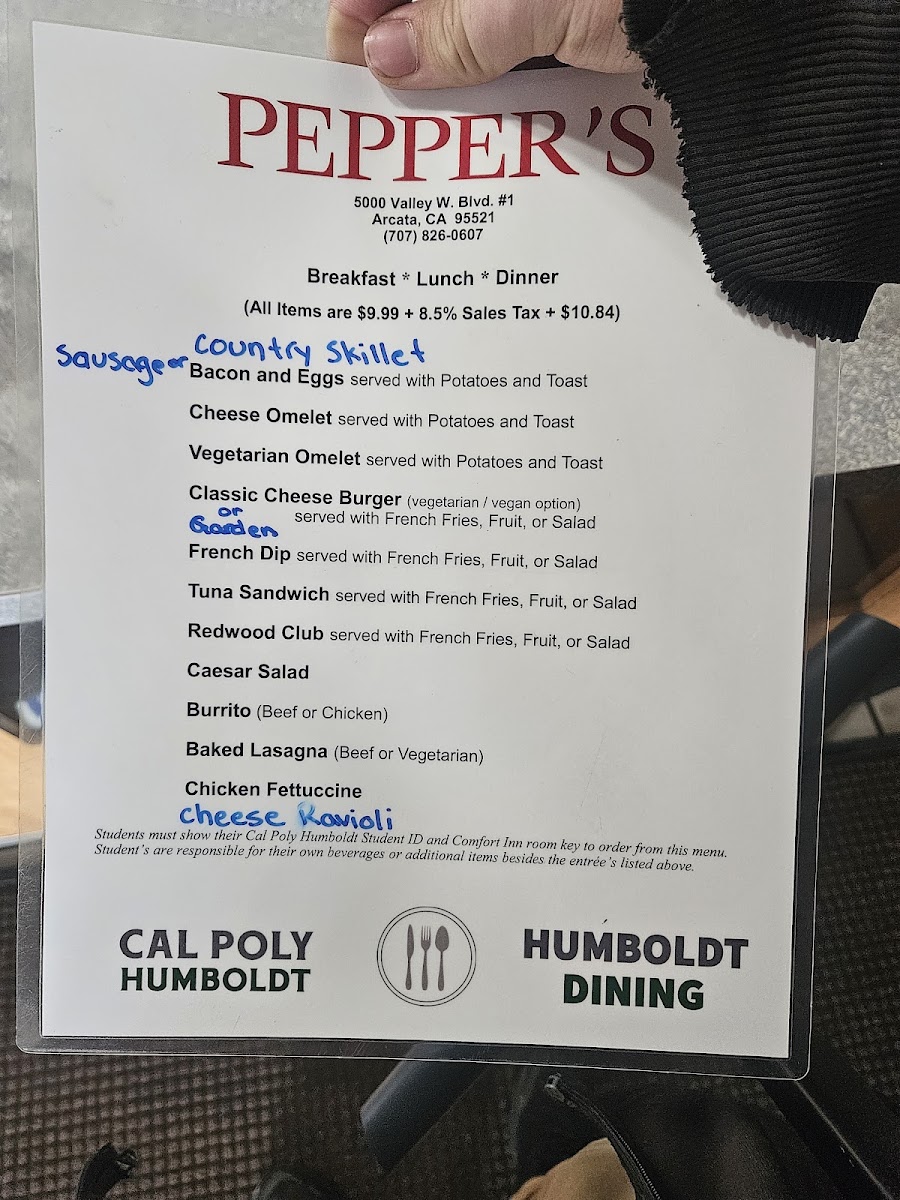 PEPPER'S
5000 Valley W. Blvd. #1
Arcata, CA 95521
(707) 826-0607
Breakfast * Lunch * Dinner
(All Items are $9.99 + 8.5% Sales Tax + $10.84)
Country Skillet
Sausage or Bacon and Eggs served with Potatoes and Toast
Cheese Omelet served with Potatoes and Toast
Vegetarian Omelet served with Potatoes and Toast
Classic Cheese Burger (vegetarian / vegan option)
or
Garden served with French Fries, Fruit, or Salad
French Dip served with French Fries, Fruit, or Salad
Tuna Sandwich served with French Fries, Fruit, or Salad
Redwood Club served with French Fries, Fruit, or Salad
Caesar Salad
Burrito (Beef or Chicken)
Baked Lasagna (Beef or Vegetarian)
Chicken Fettuccine
Cheese Ravioli
Students must show their Cal Poly Humboldt Student ID and Comfort Inn room key to order from this menu.
Student's are responsible for their own beverages or additional items besides the entrée's listed above.
CAL POLY
HUMBOLDT
HUMBOLDT
DINING